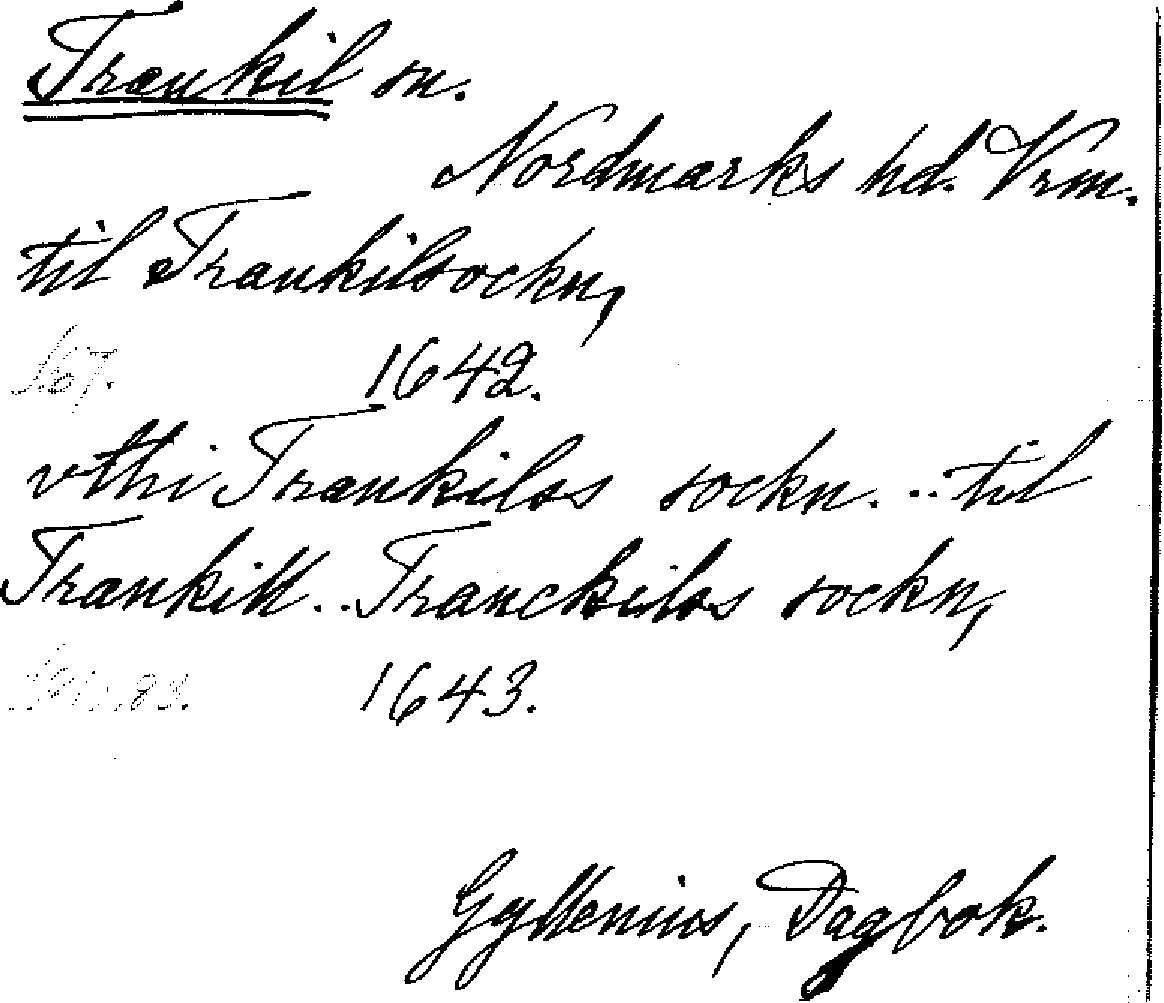 Trankil sn.
Nordmarks hd. Vrm.
til Trankilsockn,
s. 67. 1642.
vthi Trankilss sockn. .. til
Trankill .. Franckilss sockn,
1643.
Gyllenius, Dagbok.